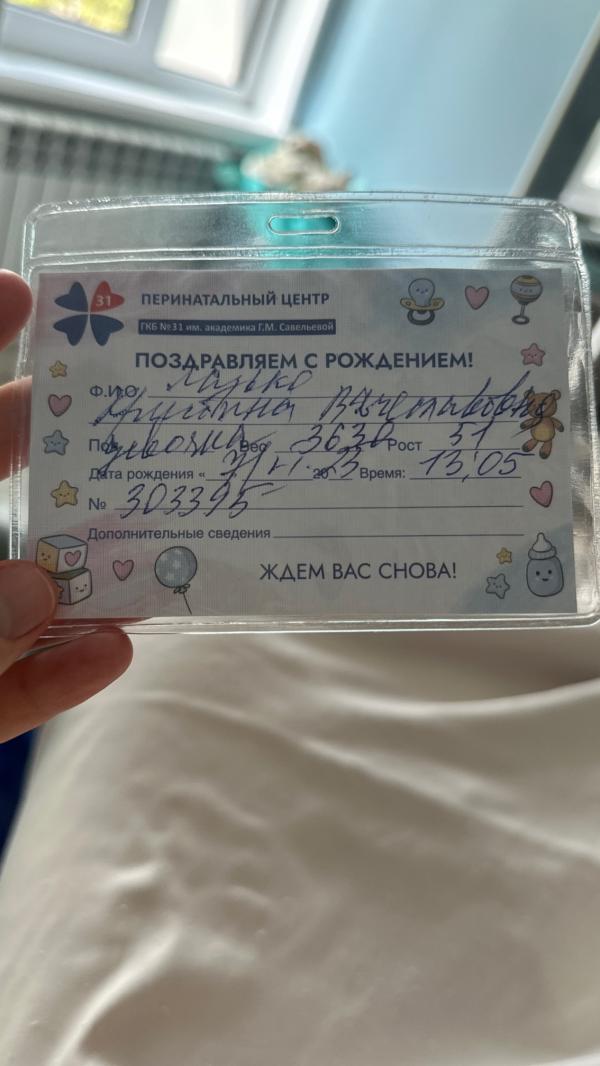 31
ПЕРИНАТАЛЬНЫЙ ЦЕНТР
ГКБ №31 им. академика Г.М. Савельевой
ПОЗДРАВЛЯЕМ С РОЖДЕНИЕМ!
Ф.И.О. Лазько
Кристина Вячеславовна
Пол девочка Вес 3630 Рост 51
Дата рождения « 20 Время: 13,05
№ 303395
Дополнительные сведения
ЖДЕМ ВАС СНОВА!